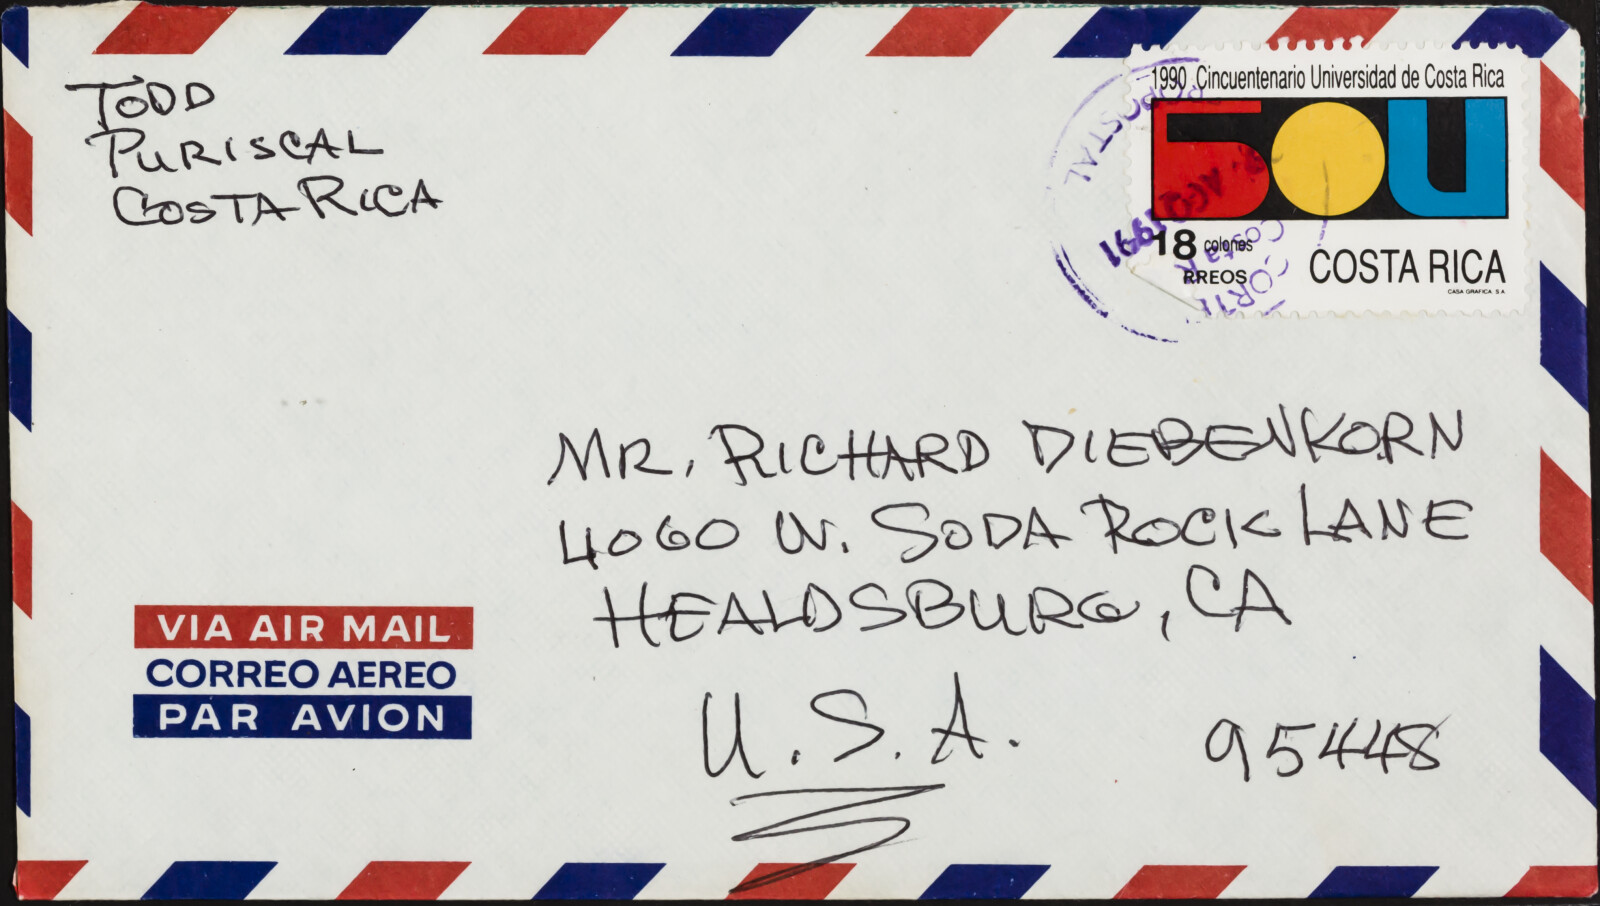 TODD
PURISCAL
COSTA RICA
1990 Cincuentenario Universidad de Costa Rica
50U
18 colones
RREOS
COSTA RICA
CASA GRAFICA S.A.
OPOSTAL
AGO 1991
Costa R
CORTE
MR. RICHARD DIEBENKORN
4060 W. SODA ROCK LANE
HEALDSBURG, CA
U.S.A. 95448
VIA AIR MAIL
CORREO AEREO
PAR AVION